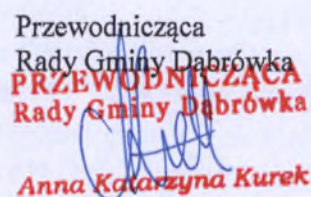 Przewodnicząca
Rady Gminy Dąbrówka
PRZEWODNICZĄCA
Rady Gminy Dąbrówka
Anna Katarzyna Kurek